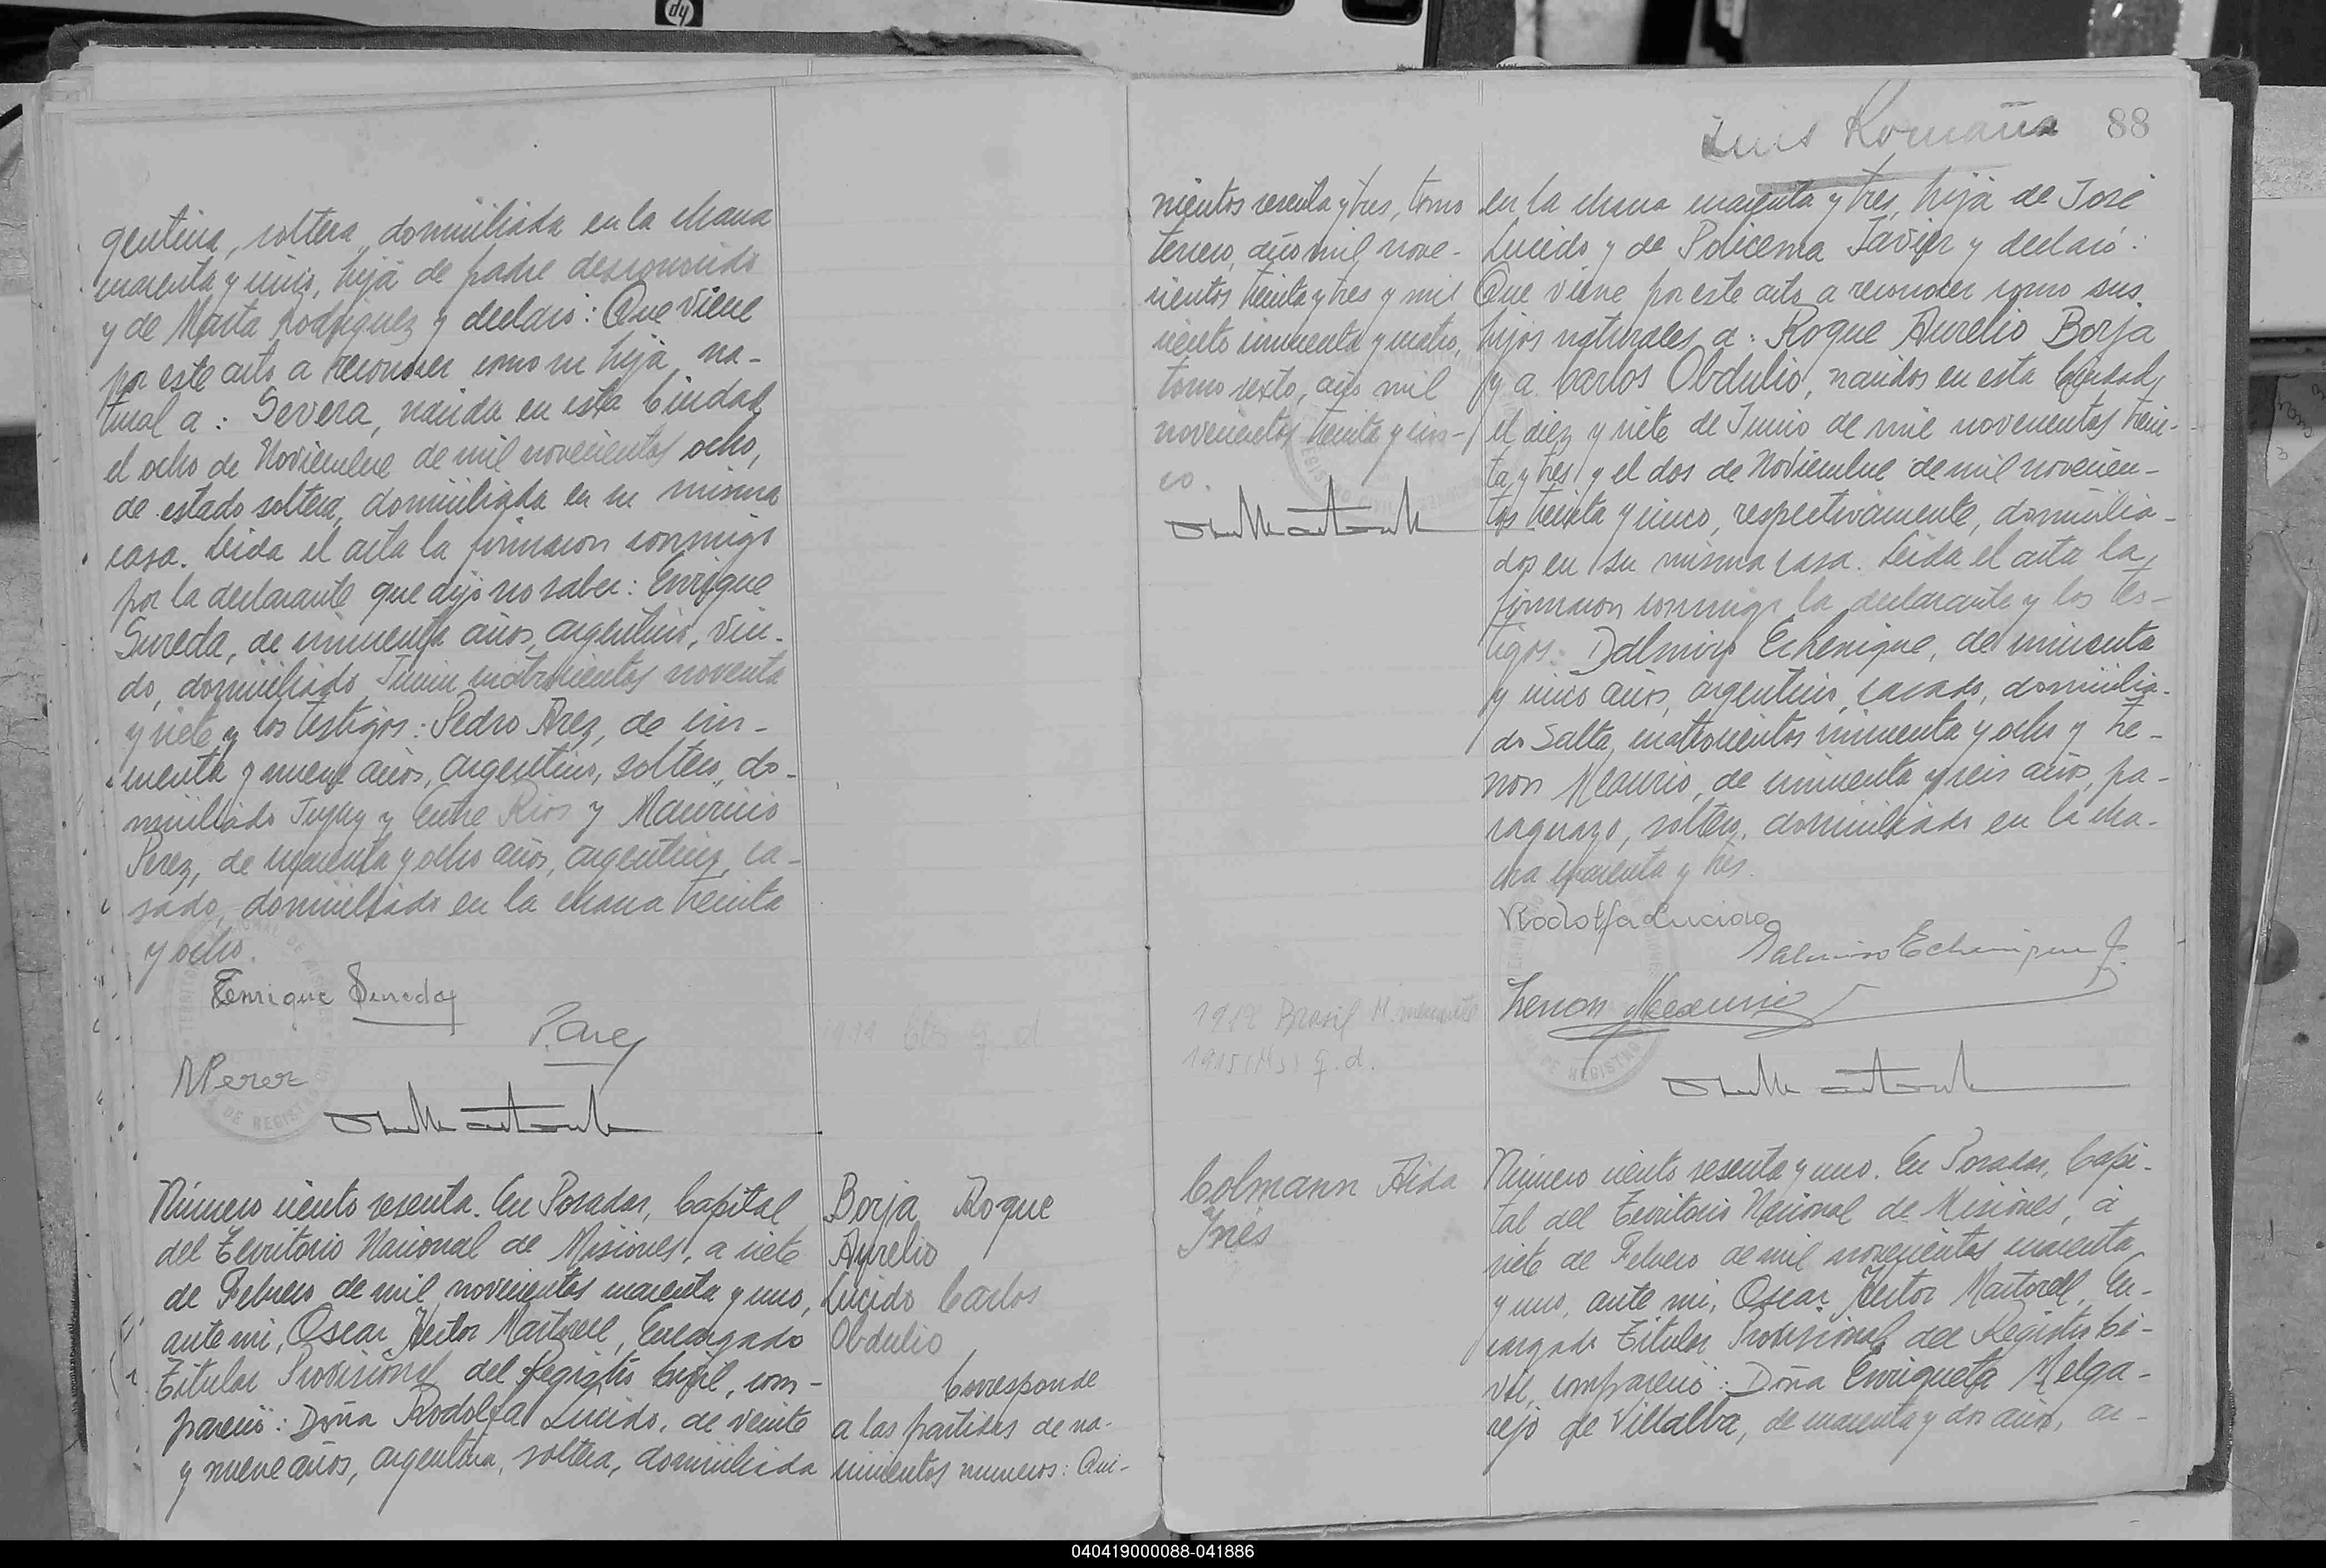 hp
gentina, soltera, domiciliada en la chacra
cuarenta y cinco, hija de padre desconocido
y de Marta Rodriguez y declaró: Que viene
por este acto a reconocer como su hija na-
tural a: Severa, nacida en esta Ciudad
el ocho de Noviembre de mil novecientos ocho,
de estado soltera, domiciliada en su misma
casa. Leida el acta la firmaron conmigo
por la declarante que dijo no saber: Enrique
Sureda, de cincuenta años, argentino, viu-
do, domiciliado Junin cuatrocientos noventa
y siete y los testigos: Pedro Arez, de cin-
cuenta y nueve años, argentino, soltero, do-
miciliado Jujuy y Entre Rios y Mauricio
Perez, de cuarenta y ocho años, argentino, ca-
sado, domiciliado en la chacra treinta
y ocho.
Enrique Sureda
P. Arez
M Perez
Número ciento sesenta. En Posadas, Capital
del Territorio Nacional de Misiones, a siete
de Febrero de mil novecientos cuarenta y uno,
ante mi, Oscar Hector Martorell, Encargado
Titular Provisional del Registro Civil, com-
pareció: Doña Rodolfa Lucido, de veinte
y nueve años, argentina, soltera, domiciliada
Borja Roque
Aurelio
Lucido Carlos
Obdulio
Corresponde
a las partidas de na-
cimientos numeros: Qui-
Luis Romaña
88
nientos sesenta y tres, tomo
tercero, año mil nove-
cientos treinta y tres y mil
ciento cincuenta y cuatro,
tomo sexto, año mil
novecientos treinta y cin-
co.
1912 Brasil M.
1915 (M5) q.d.
en la chacra cuarenta y tres, hija de José
Lucido y de Policema Javier y declaró:
Que viene por este acto a reconocer como sus
hijos naturales a: Roque Aurelio Borja
y a Carlos Obdulio, nacidos en esta Ciudad,
el diez y siete de Junio de mil novecientos trein-
ta y tres y el dos de Noviembre de mil novecien-
tos treinta y cinco, respectivamente, domicilia-
dos en su misma casa. Leida el acta la
firmaron conmigo la declarante y los tes-
tigos: Dalmiro Echenique, de cincuenta
y cinco años, argentino, casado, domicilia-
do Salta, cuatrocientos cincuenta y ocho y Ze-
non Meaurio, de cincuenta y seis años, pa-
raguayo, soltero, domiciliado en la cha-
cra cuarenta y tres.
Rodolfa Lucido
Dalmiro Echenique
Zenon Meaurio
Colmann Aida
Inés
Número ciento sesenta y uno. En Posadas, Capi-
tal del Territorio Nacional de Misiones, a
siete de Febrero de mil novecientos cuarenta
y uno, ante mi, Oscar Hector Martorell, En-
cargado Titular Provisional del Registro Ci-
vil, compareció: Doña Enriqueta Melga-
rejo de Villalba, de cuarenta y dos años, ar-
040419000088-041886